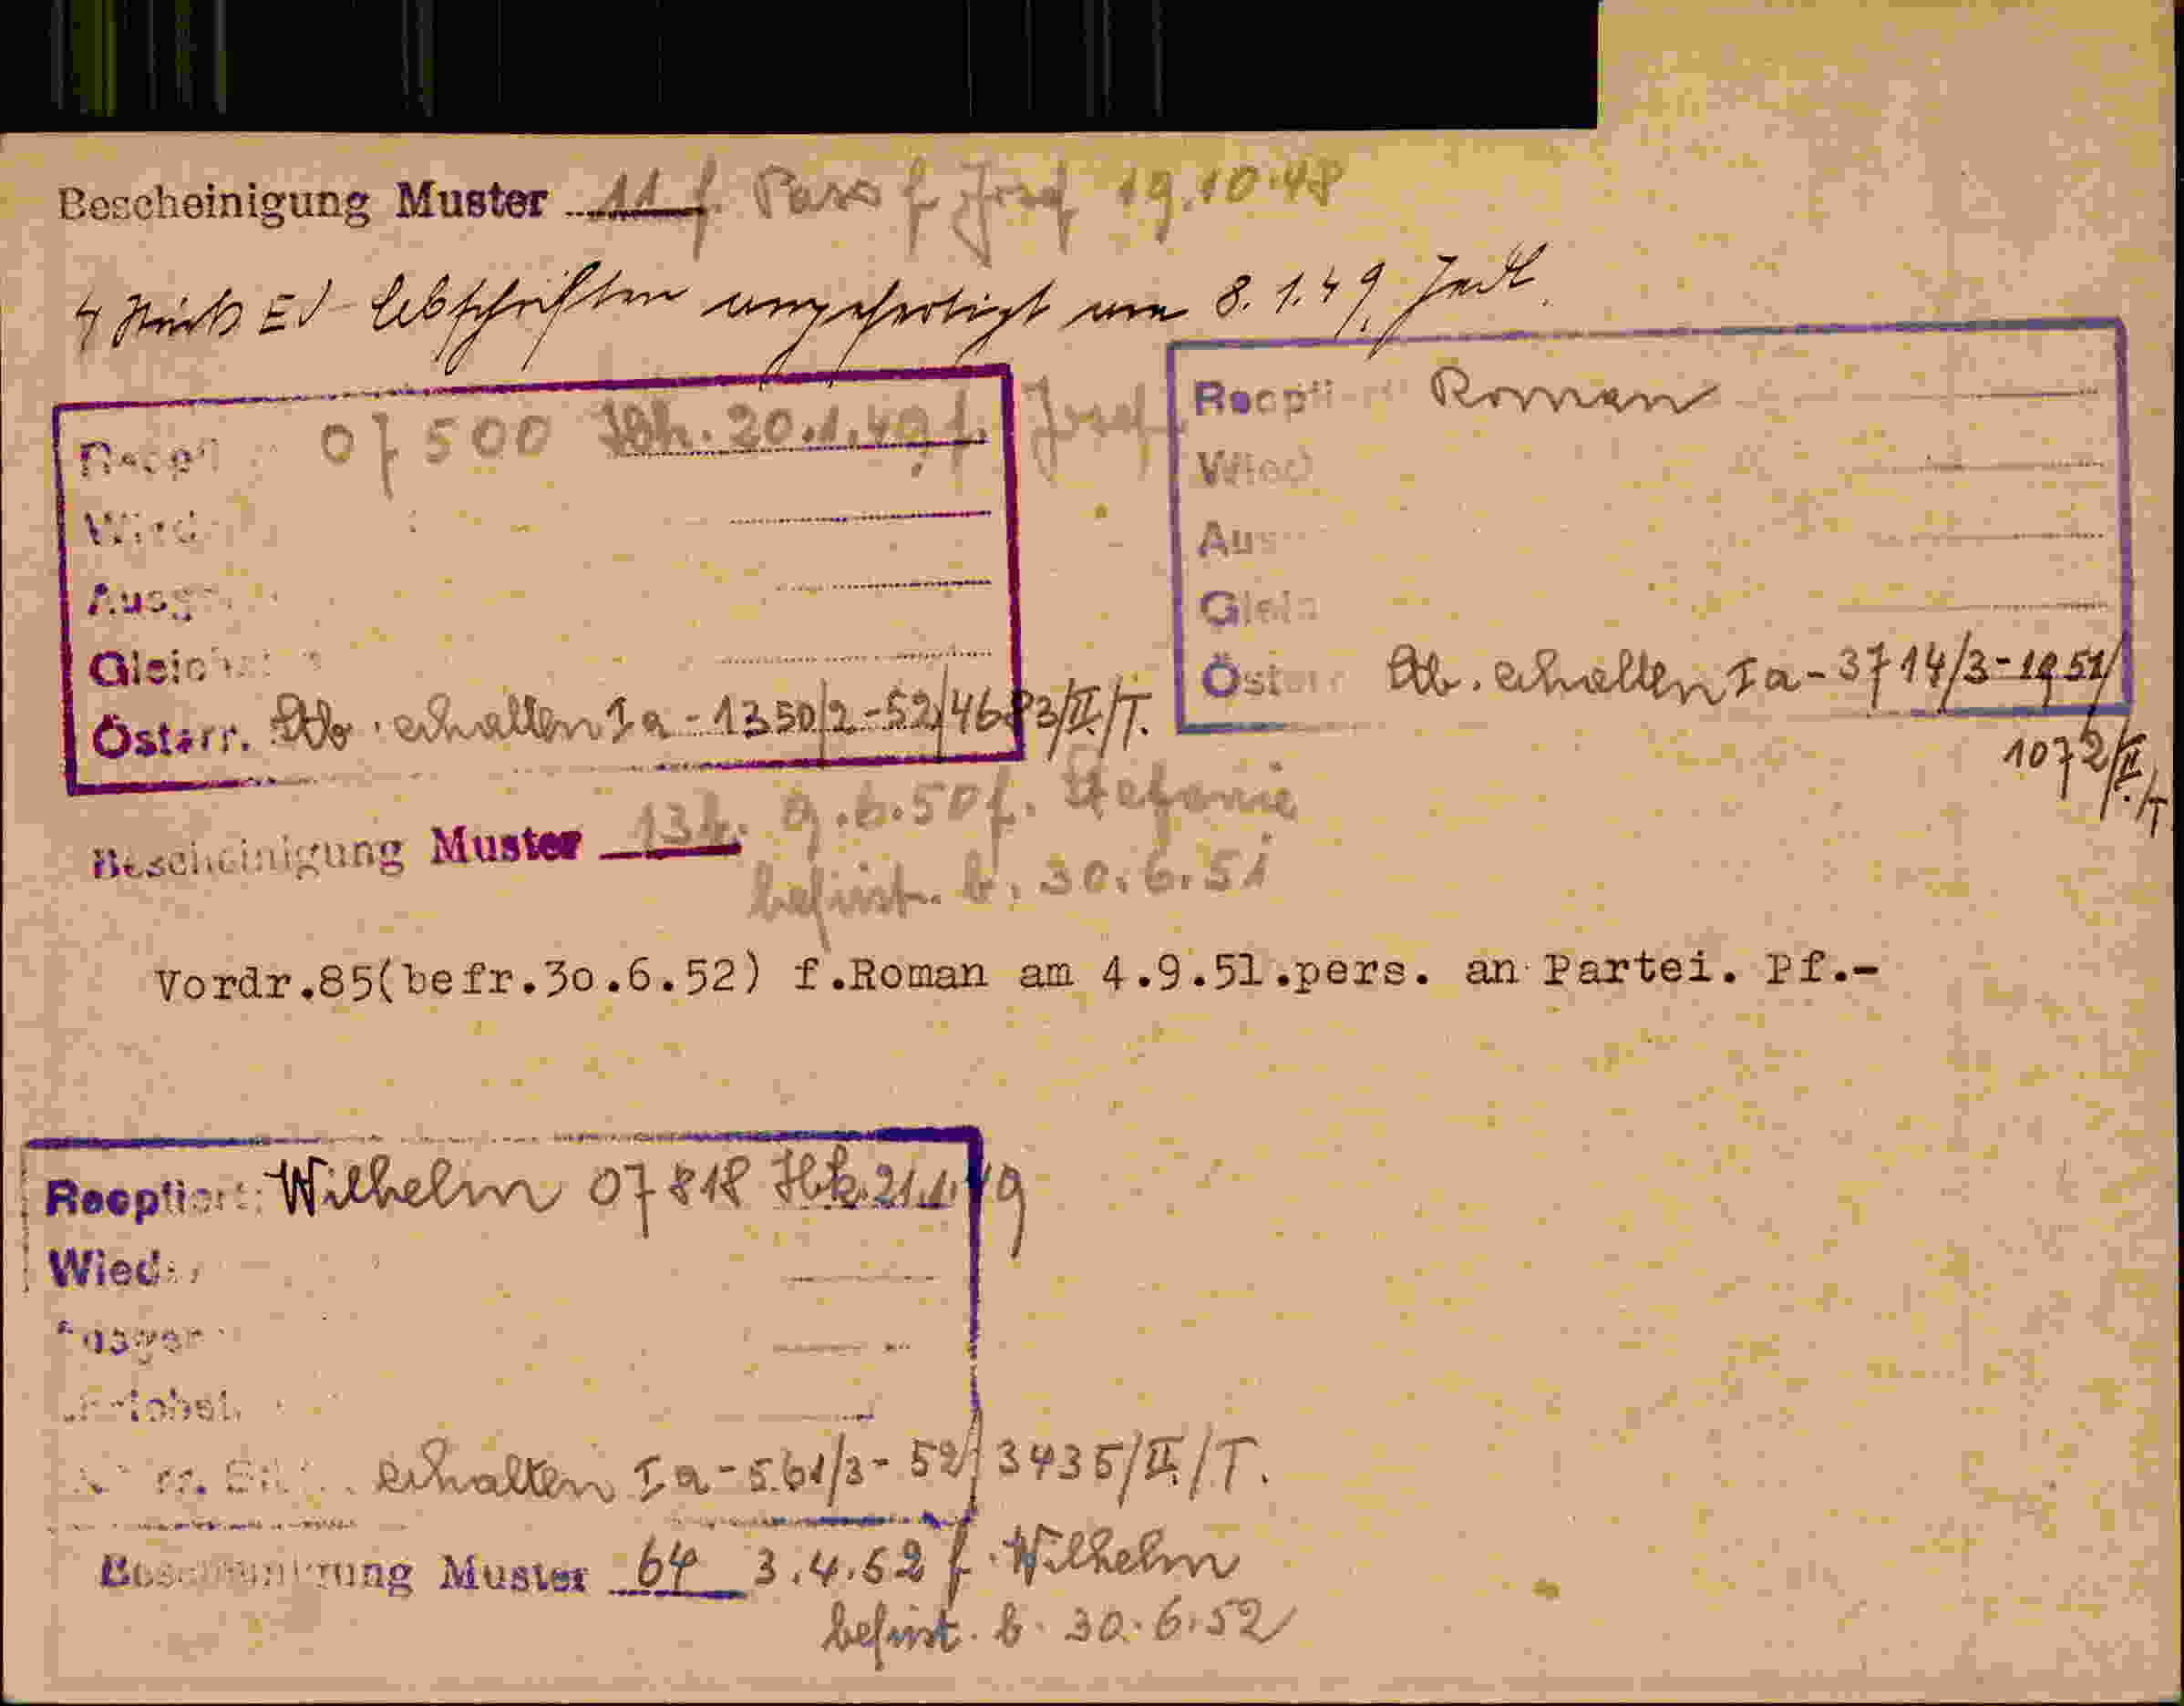 Bescheinigung Muster 11 f. Pass f Josef 19.10.48
4 Stück EV-Abschriften angefertigt am 8.1.49.
07500 Hk. 20.1.49 f. Josef
Wied
Ausg
Gleich
Österr. Stb. erhalten I a - 1350/2-52/4683/II./T.
Reopti Roman
Wied
Aus
Gleic
Österr Stb. erhalten I a - 3714/3-1951/
1072/II./T.
Bescheinigung Muster 13b. 9.6.50 f. Stefanie
befrist. b. 30.6.51
Vordr.85(befr.30.6.52) f.Roman am 4.9.51.pers. an Partei. Pf.-
Reoptiert: Wilhelm 07818 Hk. 21.1.49
Wied
erhalten I a - 561/3-52/3435/II./T.
Bescheinigung Muster 64 3.4.52 f. Wilhelm
befrist. b. 30.6.52